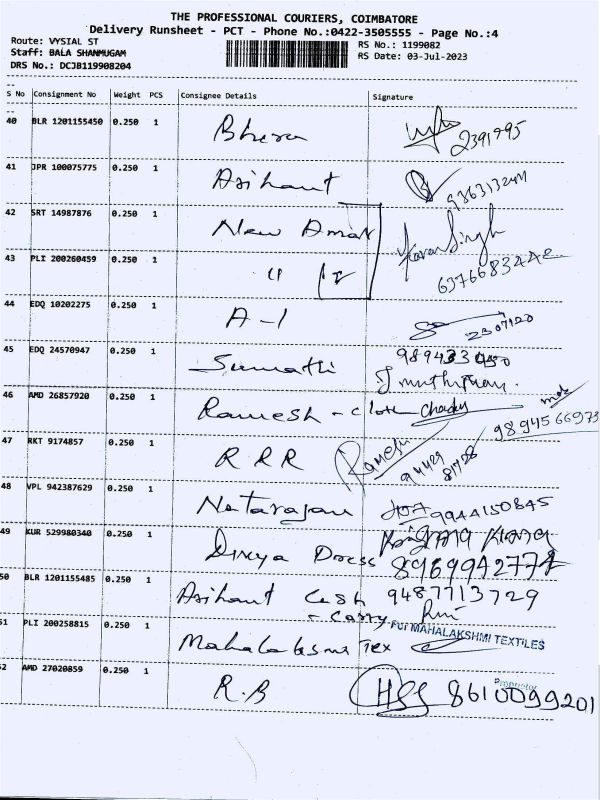 THE PROFESSIONAL COURIERS, COIMBATORE
Delivery Runsheet - PCT - Phone No.:0422-3505555 - Page No.:4
Route: VYSIAL ST
Staff: BALA SHANMUGAM
DRS No.: DCJB119908204
RS No.: 1199082
RS Date: 03-Jul-2023
S No Consignment No Weight PCS Consignee Details Signature
40 BLR 1201155450 0.250 1 Bhera 2391795
41 JPR 100075775 0.250 1 Arihant
42 SRT 14987876 0.250 1 New Aman Karan Singh
43 PLI 200260459 0.250 1 "
44 EDQ 10202275 0.250 1 A-1 2307120
45 EDQ 24570947 0.250 1 Sumathi
46 AMD 26857920 0.250 1 Ramesh - Cloth 9894566973
47 RKT 9174857 0.250 1 R R R Ramesh 94429 81728
48 VPL 942387629 0.250 1 Natarajan 9944150845
49 KUR 529980340 0.250 1 Divya Dress 8969942777
50 BLR 1201155485 0.250 1 Arihant Cash - Carry 9487713729
51 PLI 200258815 0.250 1 Mahalakshmi Tex For MAHALAKSHMI TEXTILES
Proprietor
52 AMD 27020859 0.250 1 R.B 8610099201